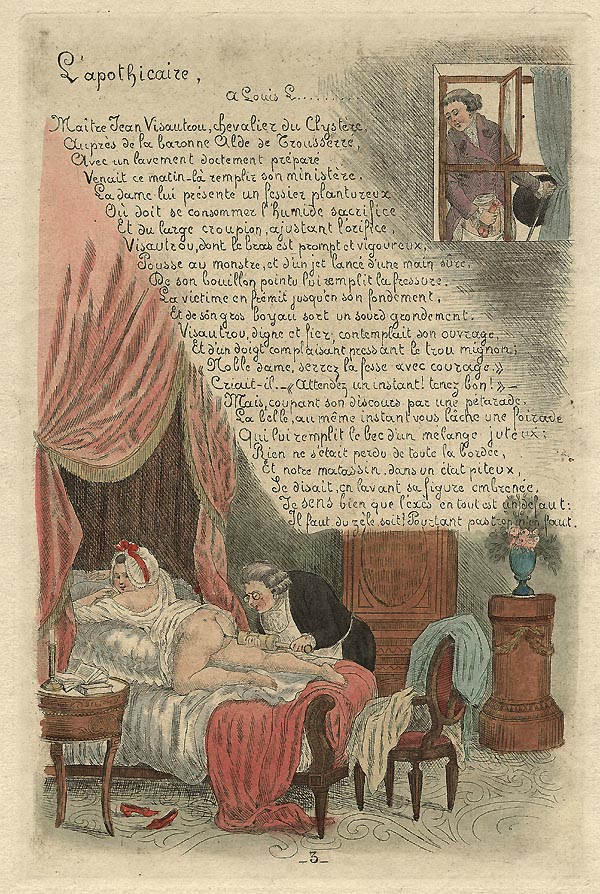 L'apothicaire,
A Louis L.........
Maître Jean Visautrou, chevalier du Clystère,
Auprès de la baronne Alde de Trousserre,
Avec un lavement doctement préparé
Venait ce matin-là remplir son ministère.
La dame lui présente un fessier plantureux
Où doit se consommer l'humide sacrifice
Et du large croupion, ajustant l'orifice,
Visautrou, dont le bras est prompt et vigoureux,
Pousse au monstre, et d'un jet lancé d'une main sûre,
De son bouillon pointu lui remplit la fressure.
La victime en frémit jusqu'en son fondement,
Et de son gros boyau sort un sourd grondement.
Visautrou, digne et fier, contemplait son ouvrage,
Et d'un doigt complaisant pressant le trou mignon;
«Noble dame, serrez la fesse avec courage.»
Criait-il._«Attendez un instant! tenez bon!»_
Mais, coupant son discours par une pétarade,
La belle, au même instant vous lâche une foirade
Qui lui remplit le bec d'un mélange juteux:
Rien ne s'était perdu de toute la bordée,
Et notre matassin, dans un état piteux,
Se disait, en lavant sa figure embrenée,
Je sens bien que l'excès en tout est un défaut:
Il faut du zèle soit! Pourtant pas trop n'en faut.
_3_